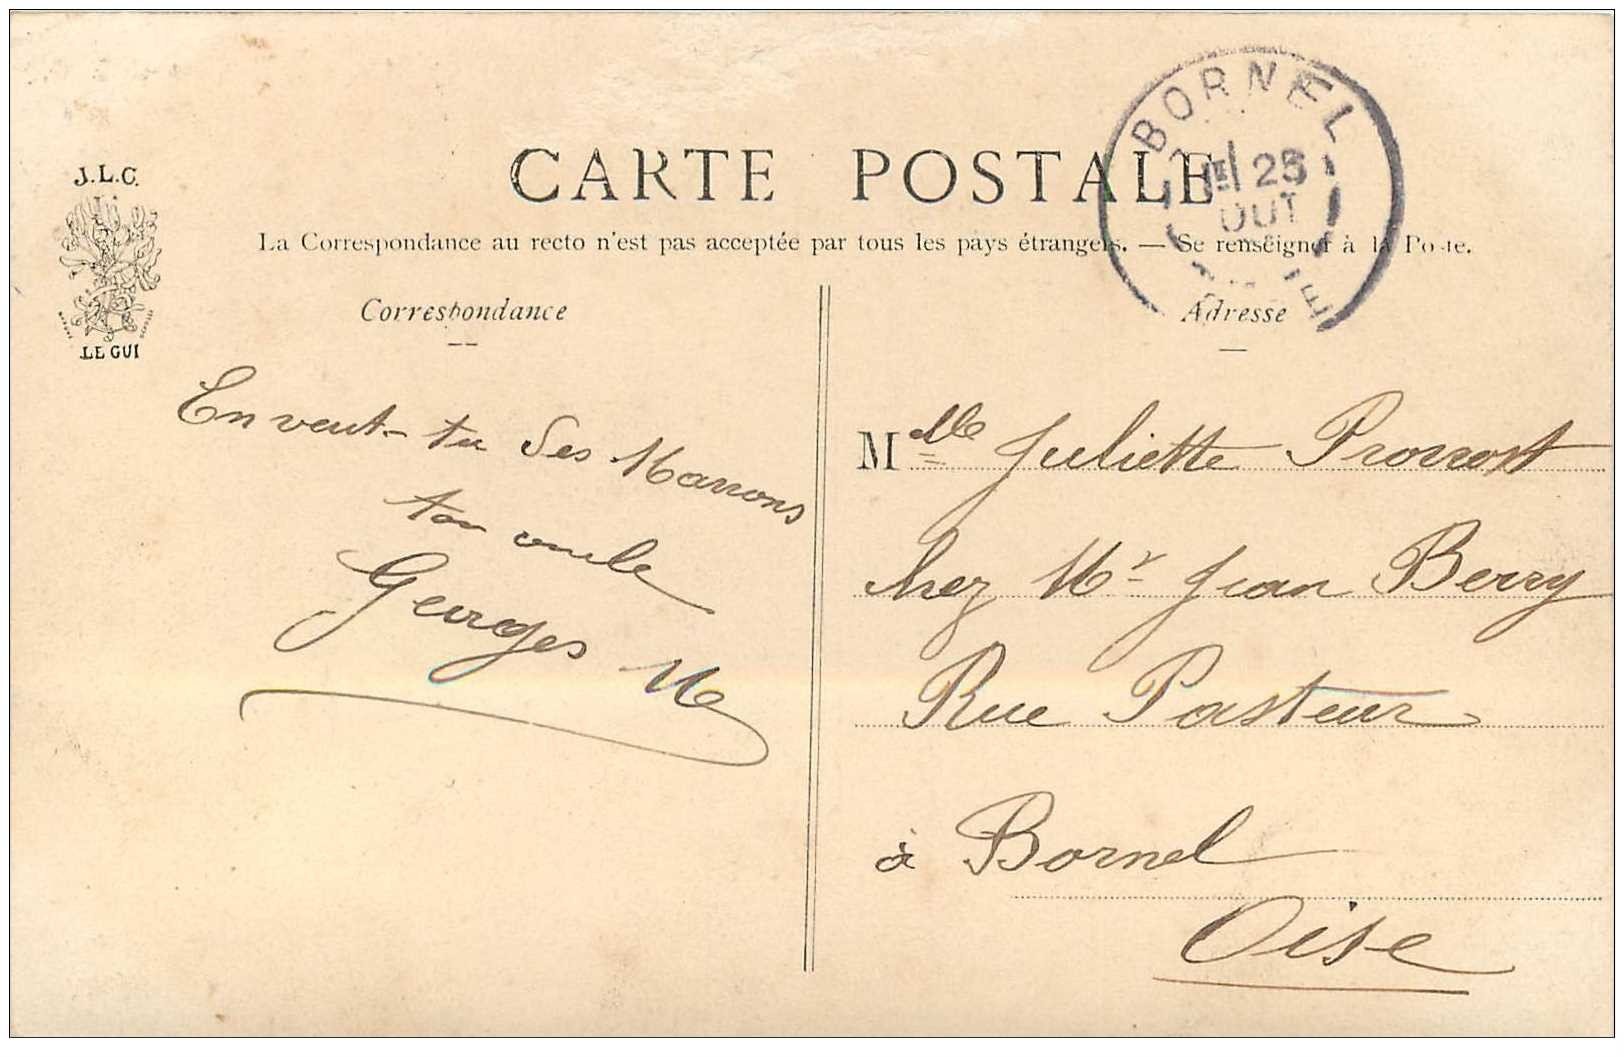 CARTE POSTALE
La Correspondance au recto n'est pas acceptée par tous les pays étrangers. — Se renseigner à la Poste.
J.L.C.
LE GUI
Correspondance
En veut-tu des Marrons
ton oncle
Georges
Adresse
BORNEL
25
OUT
M elle Juliette Provost
chez Mr Jean Berry
Rue Pasteur
à Bornel
Oise